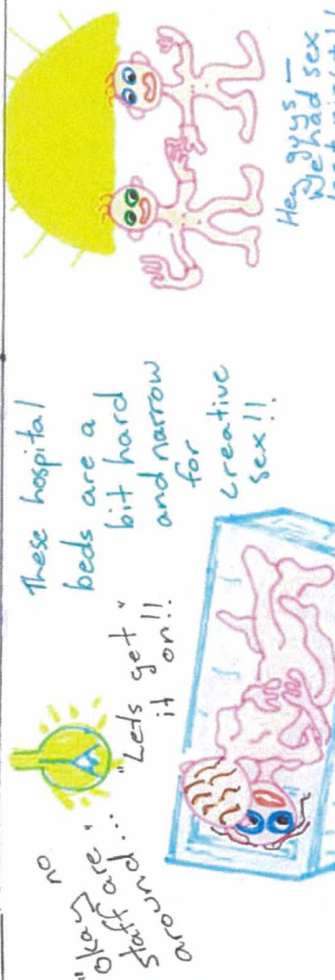 "Okay no
staff are"
around...
"Lets get"
it on!!
These hospital
beds are a
bit hard
and narrow
for
creative
sex!!
Hey guys –
We had sex
last night!